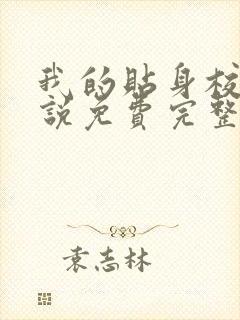 我的贴身校
说免费完整
袁志林